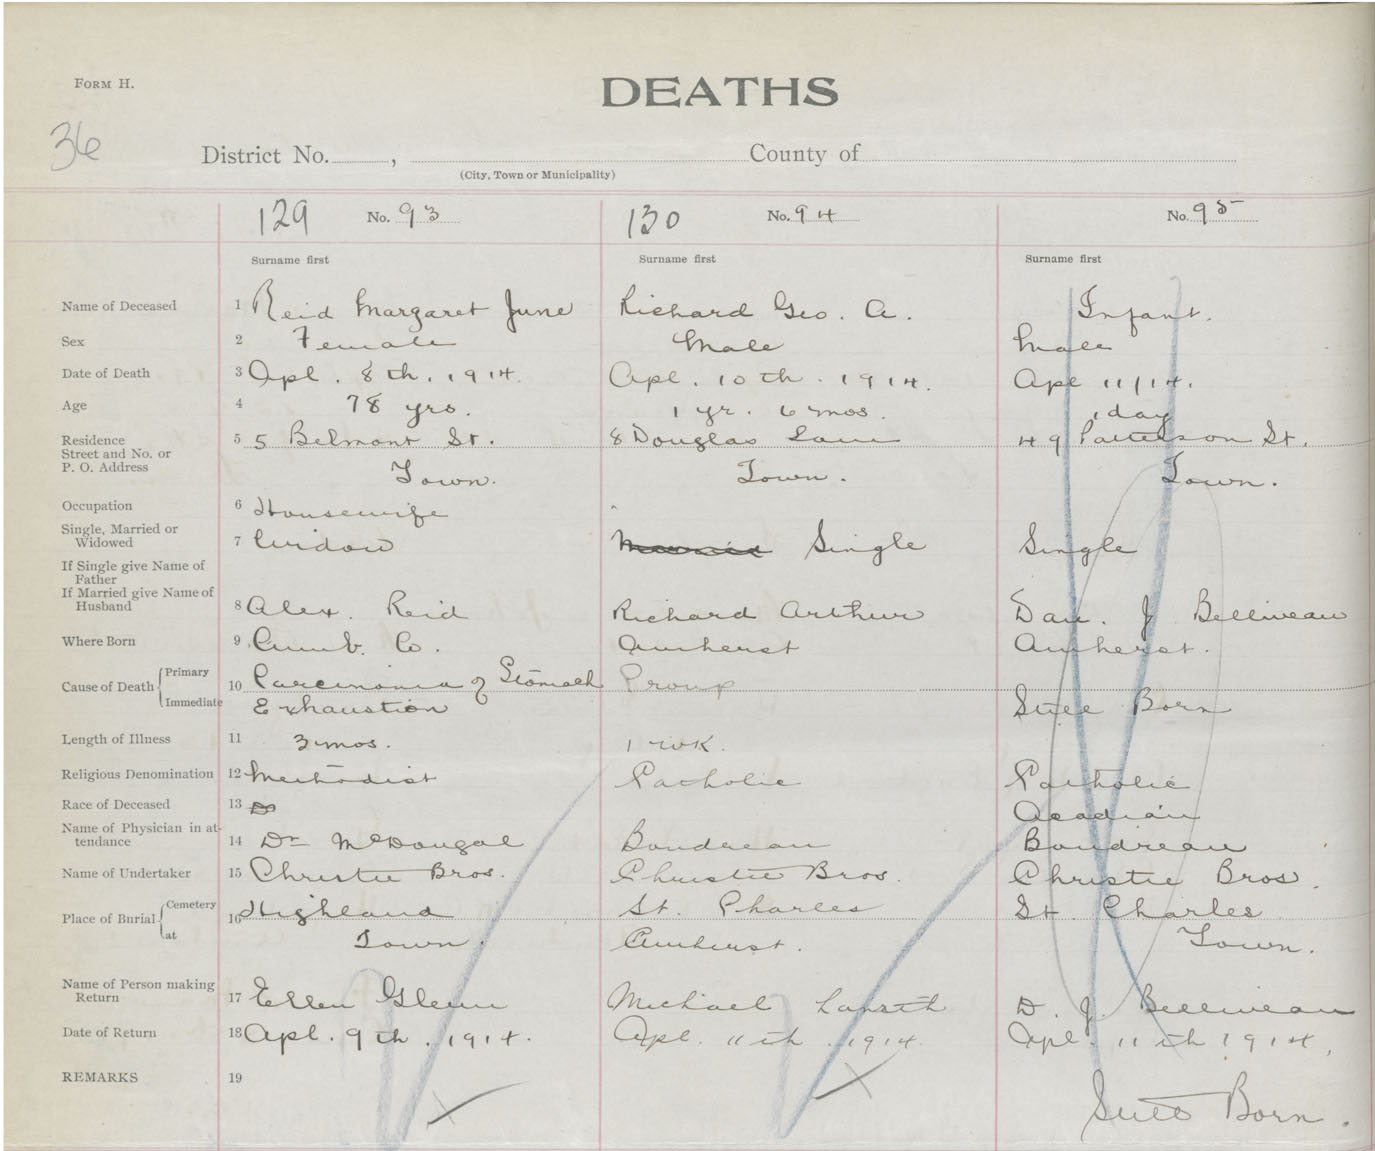 FORM H.
DEATHS
36
District No. , County of
(City, Town or Municipality)
129 No. 93 130 No. 94 No. 95
Surname first Surname first Surname first
Name of Deceased 1 Reid Margaret June Richard Geo. A. Infant.
Sex 2 Female Male Male
Date of Death 3 Apl. 8th. 1914. Apl. 10th. 1914. Apl 11/14.
Age 4 78 yrs. 1 yr. 6 mos. 1 day
Residence 5 5 Belmont St. 8 Douglas Lane 49 Patterson St.
Street and No. or
P. O. Address Town. Town. Town.
Occupation 6 Housewife
Single, Married or
Widowed 7 Widow Single Single
If Single give Name of
Father
If Married give Name of
Husband 8 Alex. Reid Richard Arthur Dan. J Belliveau
Where Born 9 Cumb. Co. Amherst Amherst.
Cause of Death Primary 10 Carcinoma of Stomach Croup
Immediate Exhaustion Still Born
Length of Illness 11 3 mos. 1 wk.
Religious Denomination 12 Methodist Catholic Catholic
Race of Deceased 13 Acadian
Name of Physician in at-
tendance 14 Dr McDougal Boudreau Boudreau
Name of Undertaker 15 Christie Bros. Christie Bros. Christie Bros.
Place of Burial Cemetery 16 Highland St. Charles St. Charles
at Town. Amherst. Town.
Name of Person making
Return 17 Ellen Glenn Michael D. J. Belliveau
Date of Return 18 Apl. 9th. 1914. Apl. 11th. 1914. Apl. 11th 1914.
REMARKS 19
Still Born.